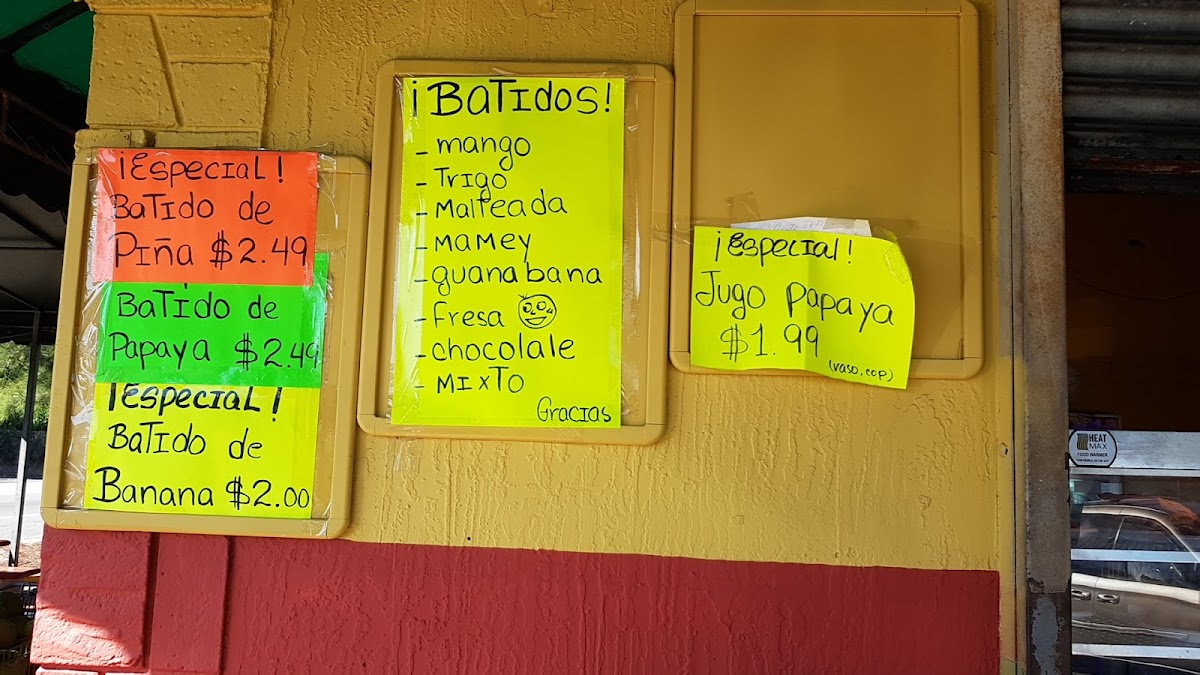 ¡Especial!
Batido de
Piña $2.49
Batido de
Papaya $2.49
¡Especial!
Batido de
Banana $2.00
¡Batidos!
- mango
- Trigo
- Malteada
- Mamey
- guanabana
- Fresa
- chocolale
- Mixto
Gracias
¡Especial!
Jugo Papaya
$1.99
(vaso.cop)
HEAT
MAX
FOOD WARMER